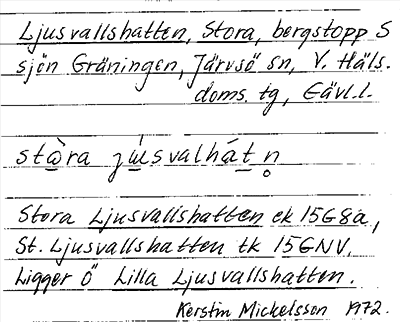 Ljusvallshatten, Stora, bergstopp S
sjön Gräningen, Järvsö sn, V. Häls.
doms. tg, Gävl.l.
stòra júsvalhát n̥
Stora Ljusvallshatten ek 15G8a,
St. Ljusvallshatten tk 15GNV.
Ligger Ö Lilla Ljusvallshatten.
Kerstin Mickelsson 1972.